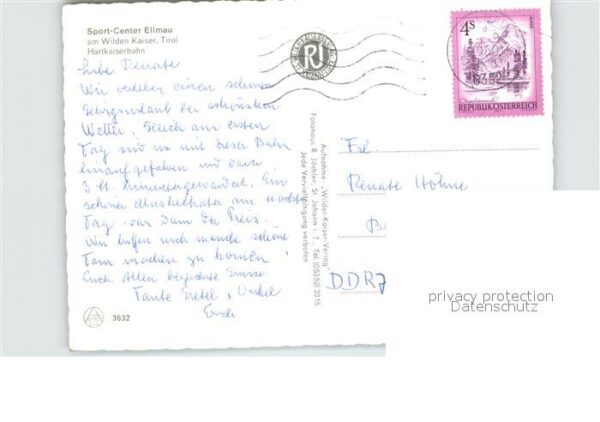 Sport-Center Ellmau
am Wilden Kaiser, Tirol
Hartkaiserbahn
Liebe Renate
Wir verleben einen schönen
Gebirgsurlaub bei schönstem
Wetter. Gleich am ersten
Tag sind wir mit dieser Bahn
hinaufgefahren und dann
3 St. hinuntergewandert. Ein
schöner Muskelkater am nächsten
Tag war dann der Preis.
Wir hoffen noch manche schöne
Tour machen zu können
Euch Allen herzliche Grüsse
Tante Gretel u. Onkel
Erich
3632
Aufnahme: „Wilder-Kaiser-Verlag"
Fotohaus R. Jöchler, St. Johann i. T., Tel. (05352) 2315
Jede Vervielfältigung verboten
RJ
4S
REPUBLIK ÖSTERREICH
6352
Frl.
Renate Höhne
DDR
privacy protection
Datenschutz